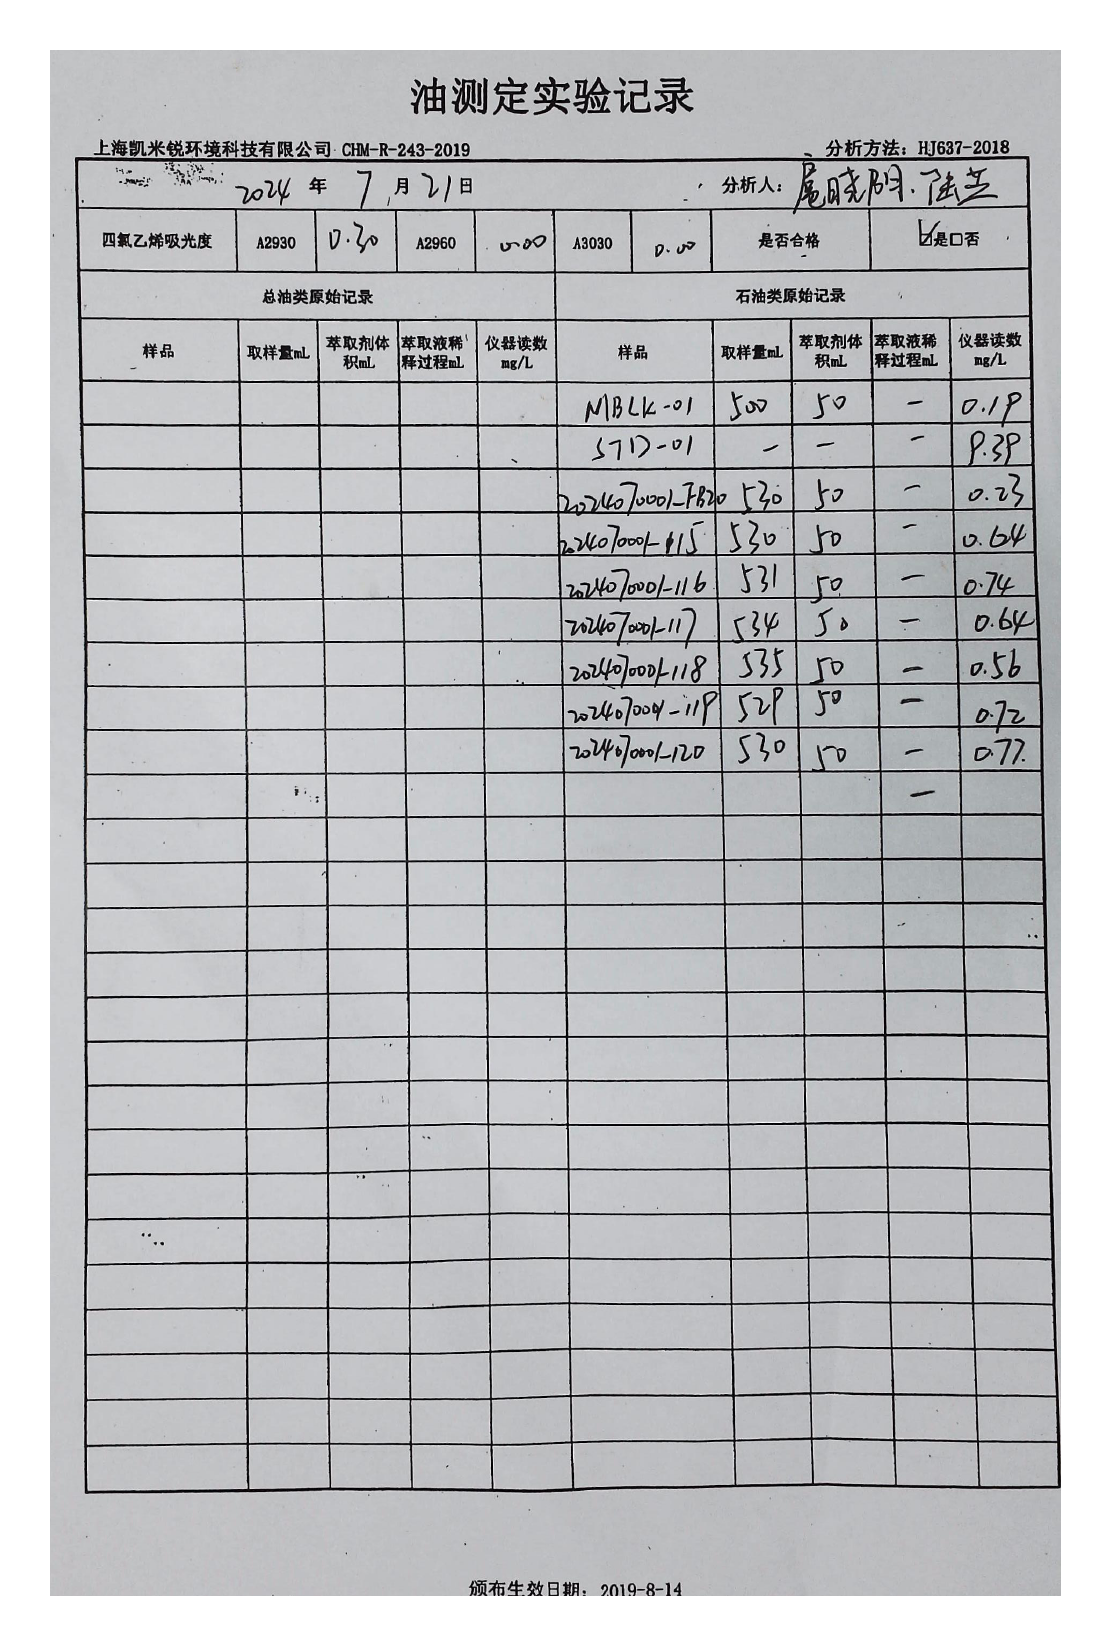 油测定实验记录
上海凯米锐环境科技有限公司 CHM-R-243-2019 分析方法：HJ637-2018
2024 年 7 月 21 日 分析人：
四氯乙烯吸光度 A2930 0.30 A2960 0.00 A3030 0.00 是否合格 ☑是□否
总油类原始记录 石油类原始记录
样品 取样量mL 萃取剂体积mL 萃取液稀释过程mL 仪器读数mg/L 样品 取样量mL 萃取剂体积mL 萃取液稀释过程mL 仪器读数mg/L
MBLK-01 500 50 — 0.19
STD-01 — — — 9.39
2024070001-FB20 530 50 — 0.23
2024070001-115 530 50 — 0.64
2024070001-116 531 50 — 0.74
2024070001-117 534 50 — 0.64
2024070001-118 535 50 — 0.56
2024070001-119 529 50 — 0.72
2024070001-120 530 50 — 0.77
—
颁布生效日期：2019-8-14